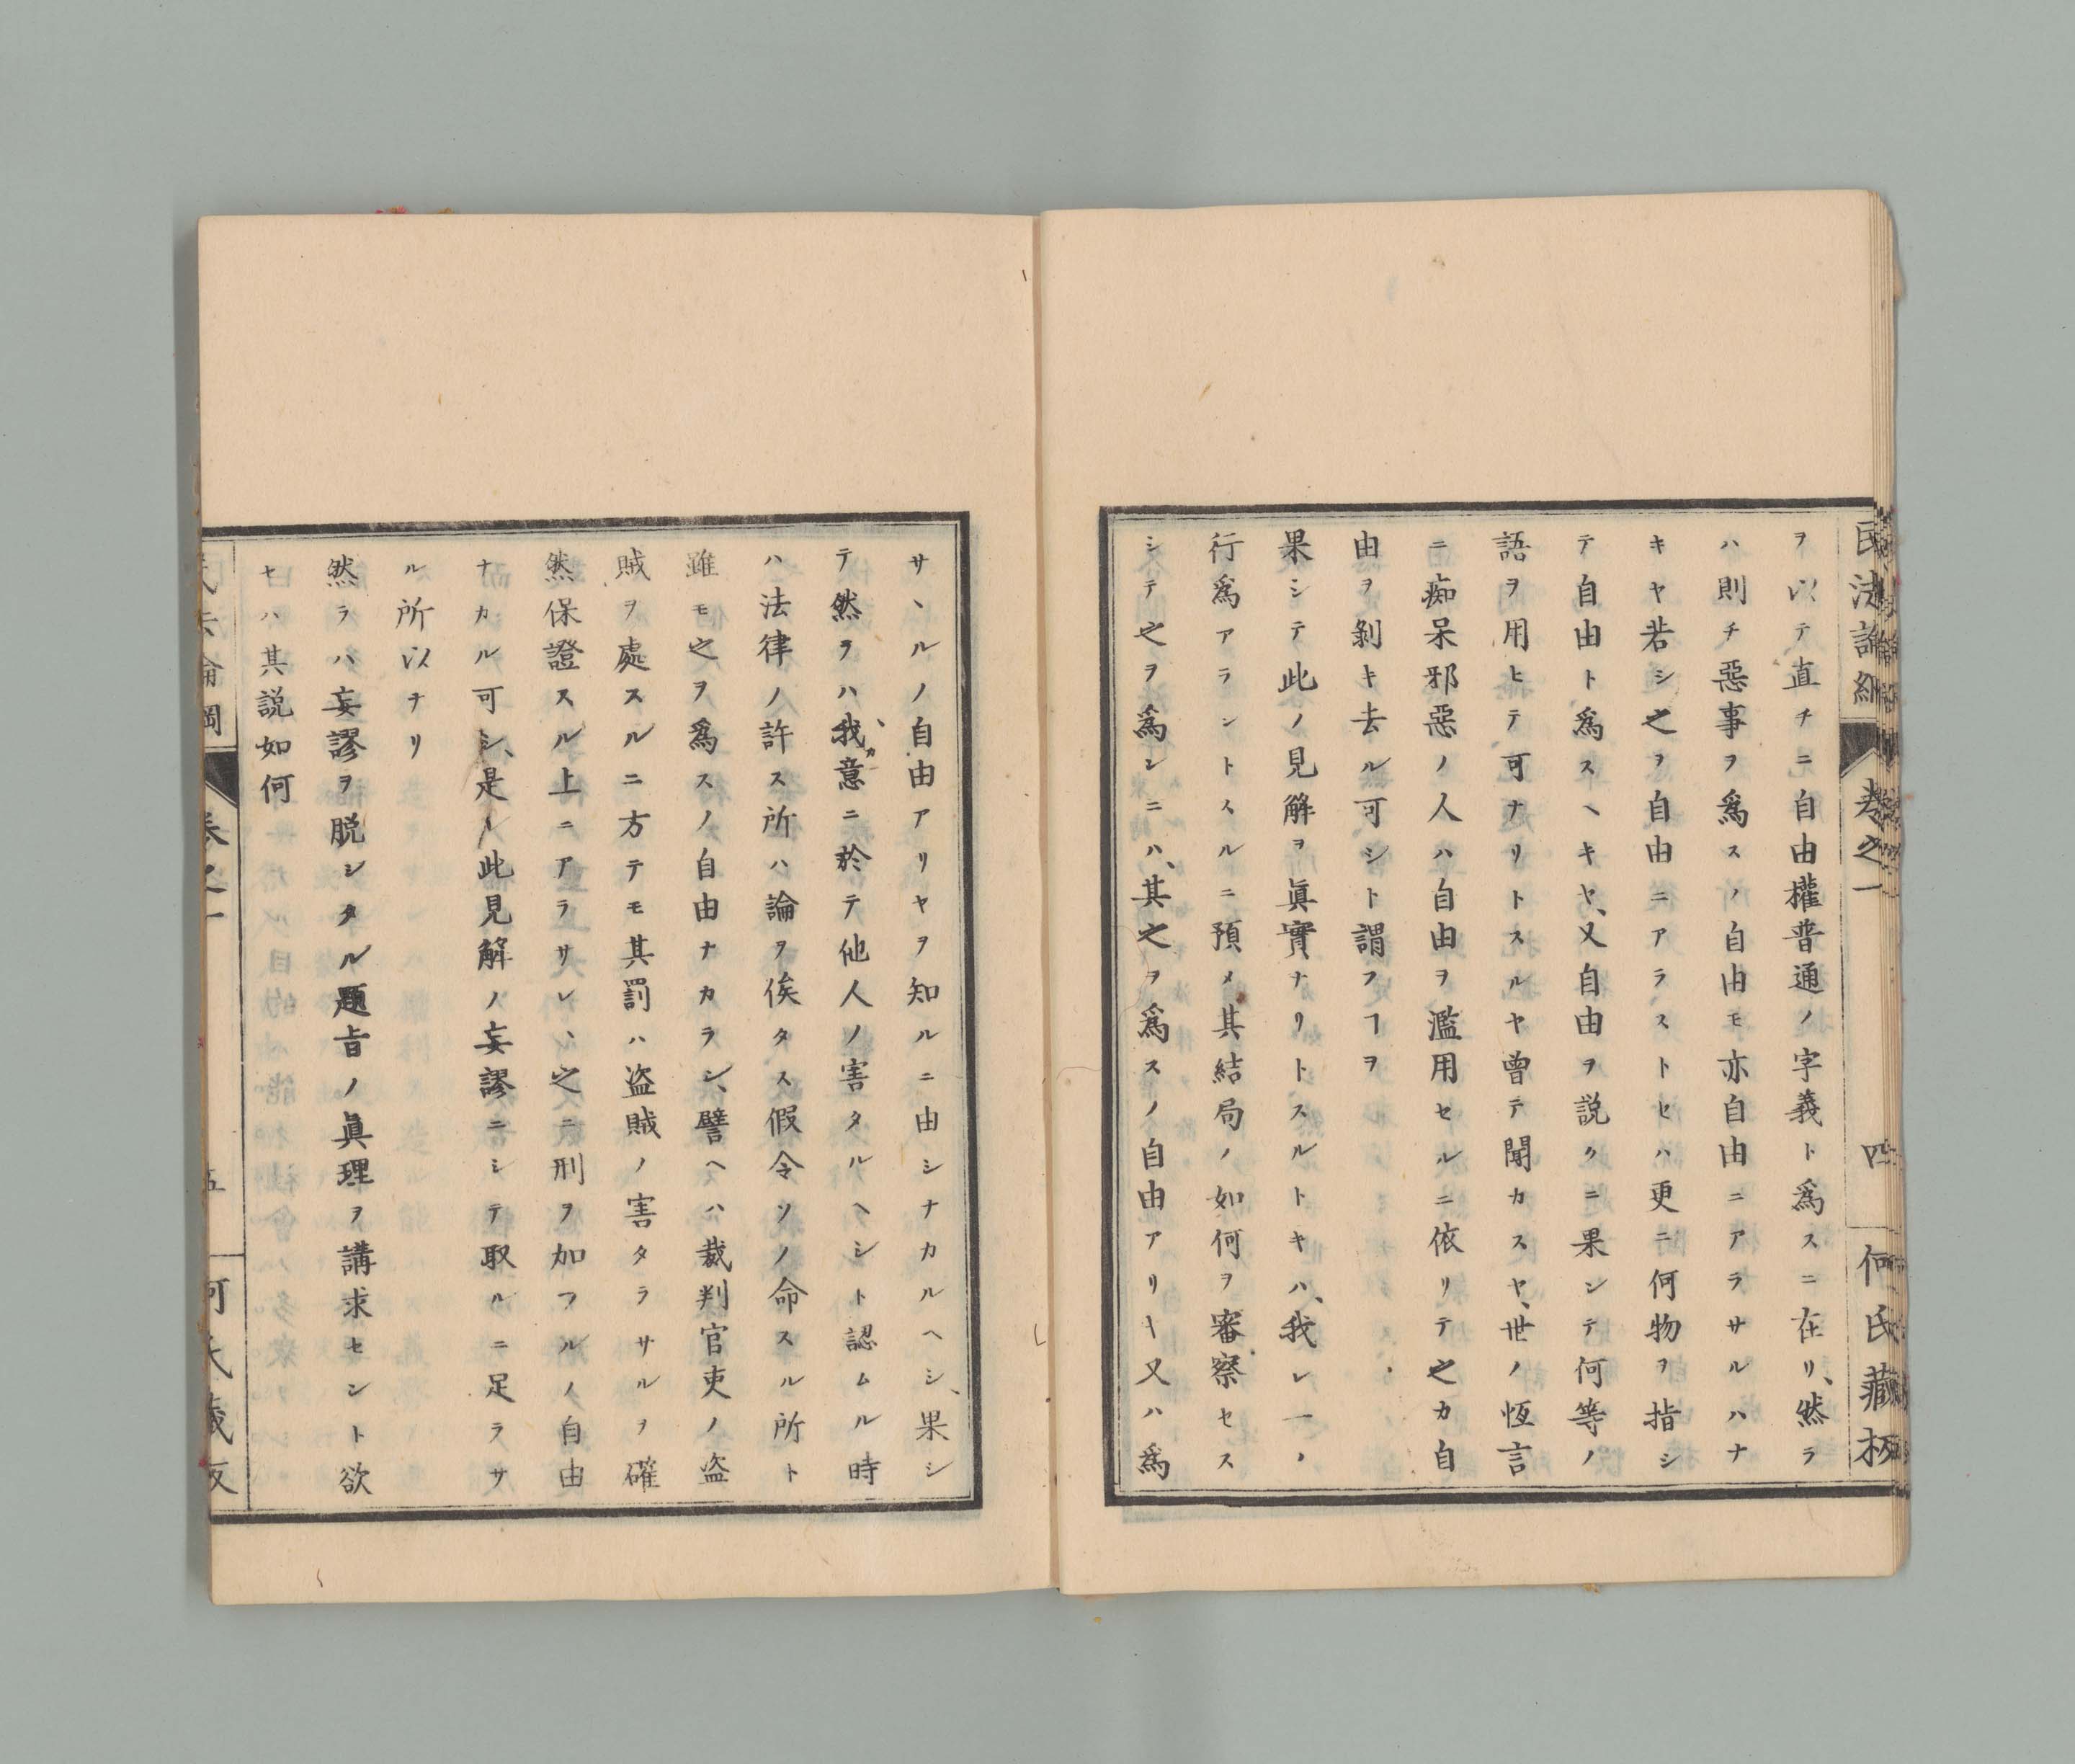 民法論綱 卷之一 四 何氏藏板
ヲ以テ直チニ自由權普通ノ字義ト爲スニ在リ、然ラ
ハ則チ惡事ヲ爲スノ自由モ亦自由ニアラサルハナ
キヤ若シ之ヲ自由ニアラストセハ更ニ何物ヲ指シ
テ自由ト爲スヘキヤ、又自由ヲ説クニ果シテ何等ノ
語ヲ用ヒテ可ナリトスルヤ曾テ聞カスヤ、世ノ恆言
ニ痴呆邪惡ノ人ハ自由ヲ濫用セルニ依リテ之カ自
由ヲ剝キ去ル可シト謂フヿヲ
果シテ此ノ見解ヲ眞實ナリトスルトキハ、我レ一ノ
行爲アラントスルニ預メ其結局ノ如何ヲ審察セス
シテ之ヲ爲シニハ、其之ヲ爲スノ自由アリキ又ハ爲
サヽルノ自由アリヤヲ知ルニ由シナカルヘシ、果シ
テ然ラハ、我カ意ニ於テ他人ノ害タルヘシト認ムル時
ハ法律ノ許ス所ハ論ヲ俟タス假令ソノ命スル所ト
雖モ之ヲ爲スノ自由ナカラシ、譬ヘハ裁判官吏ノ盗
賊ヲ處スルニ方テモ其罰ハ盗賊ノ害タラサルヲ確
然保證スル上ニアラサレハ、之ニ刑ヲ加フルノ自由
ナカル可シ、是レ此見解ノ妄謬ニシテ取ルニ足ラサ
ル所以ナリ
然ラハ妄謬ヲ脱シタル題旨ノ眞理ヲ講求セント欲
セハ其説如何
民法論綱 卷之一 五 何氏藏板